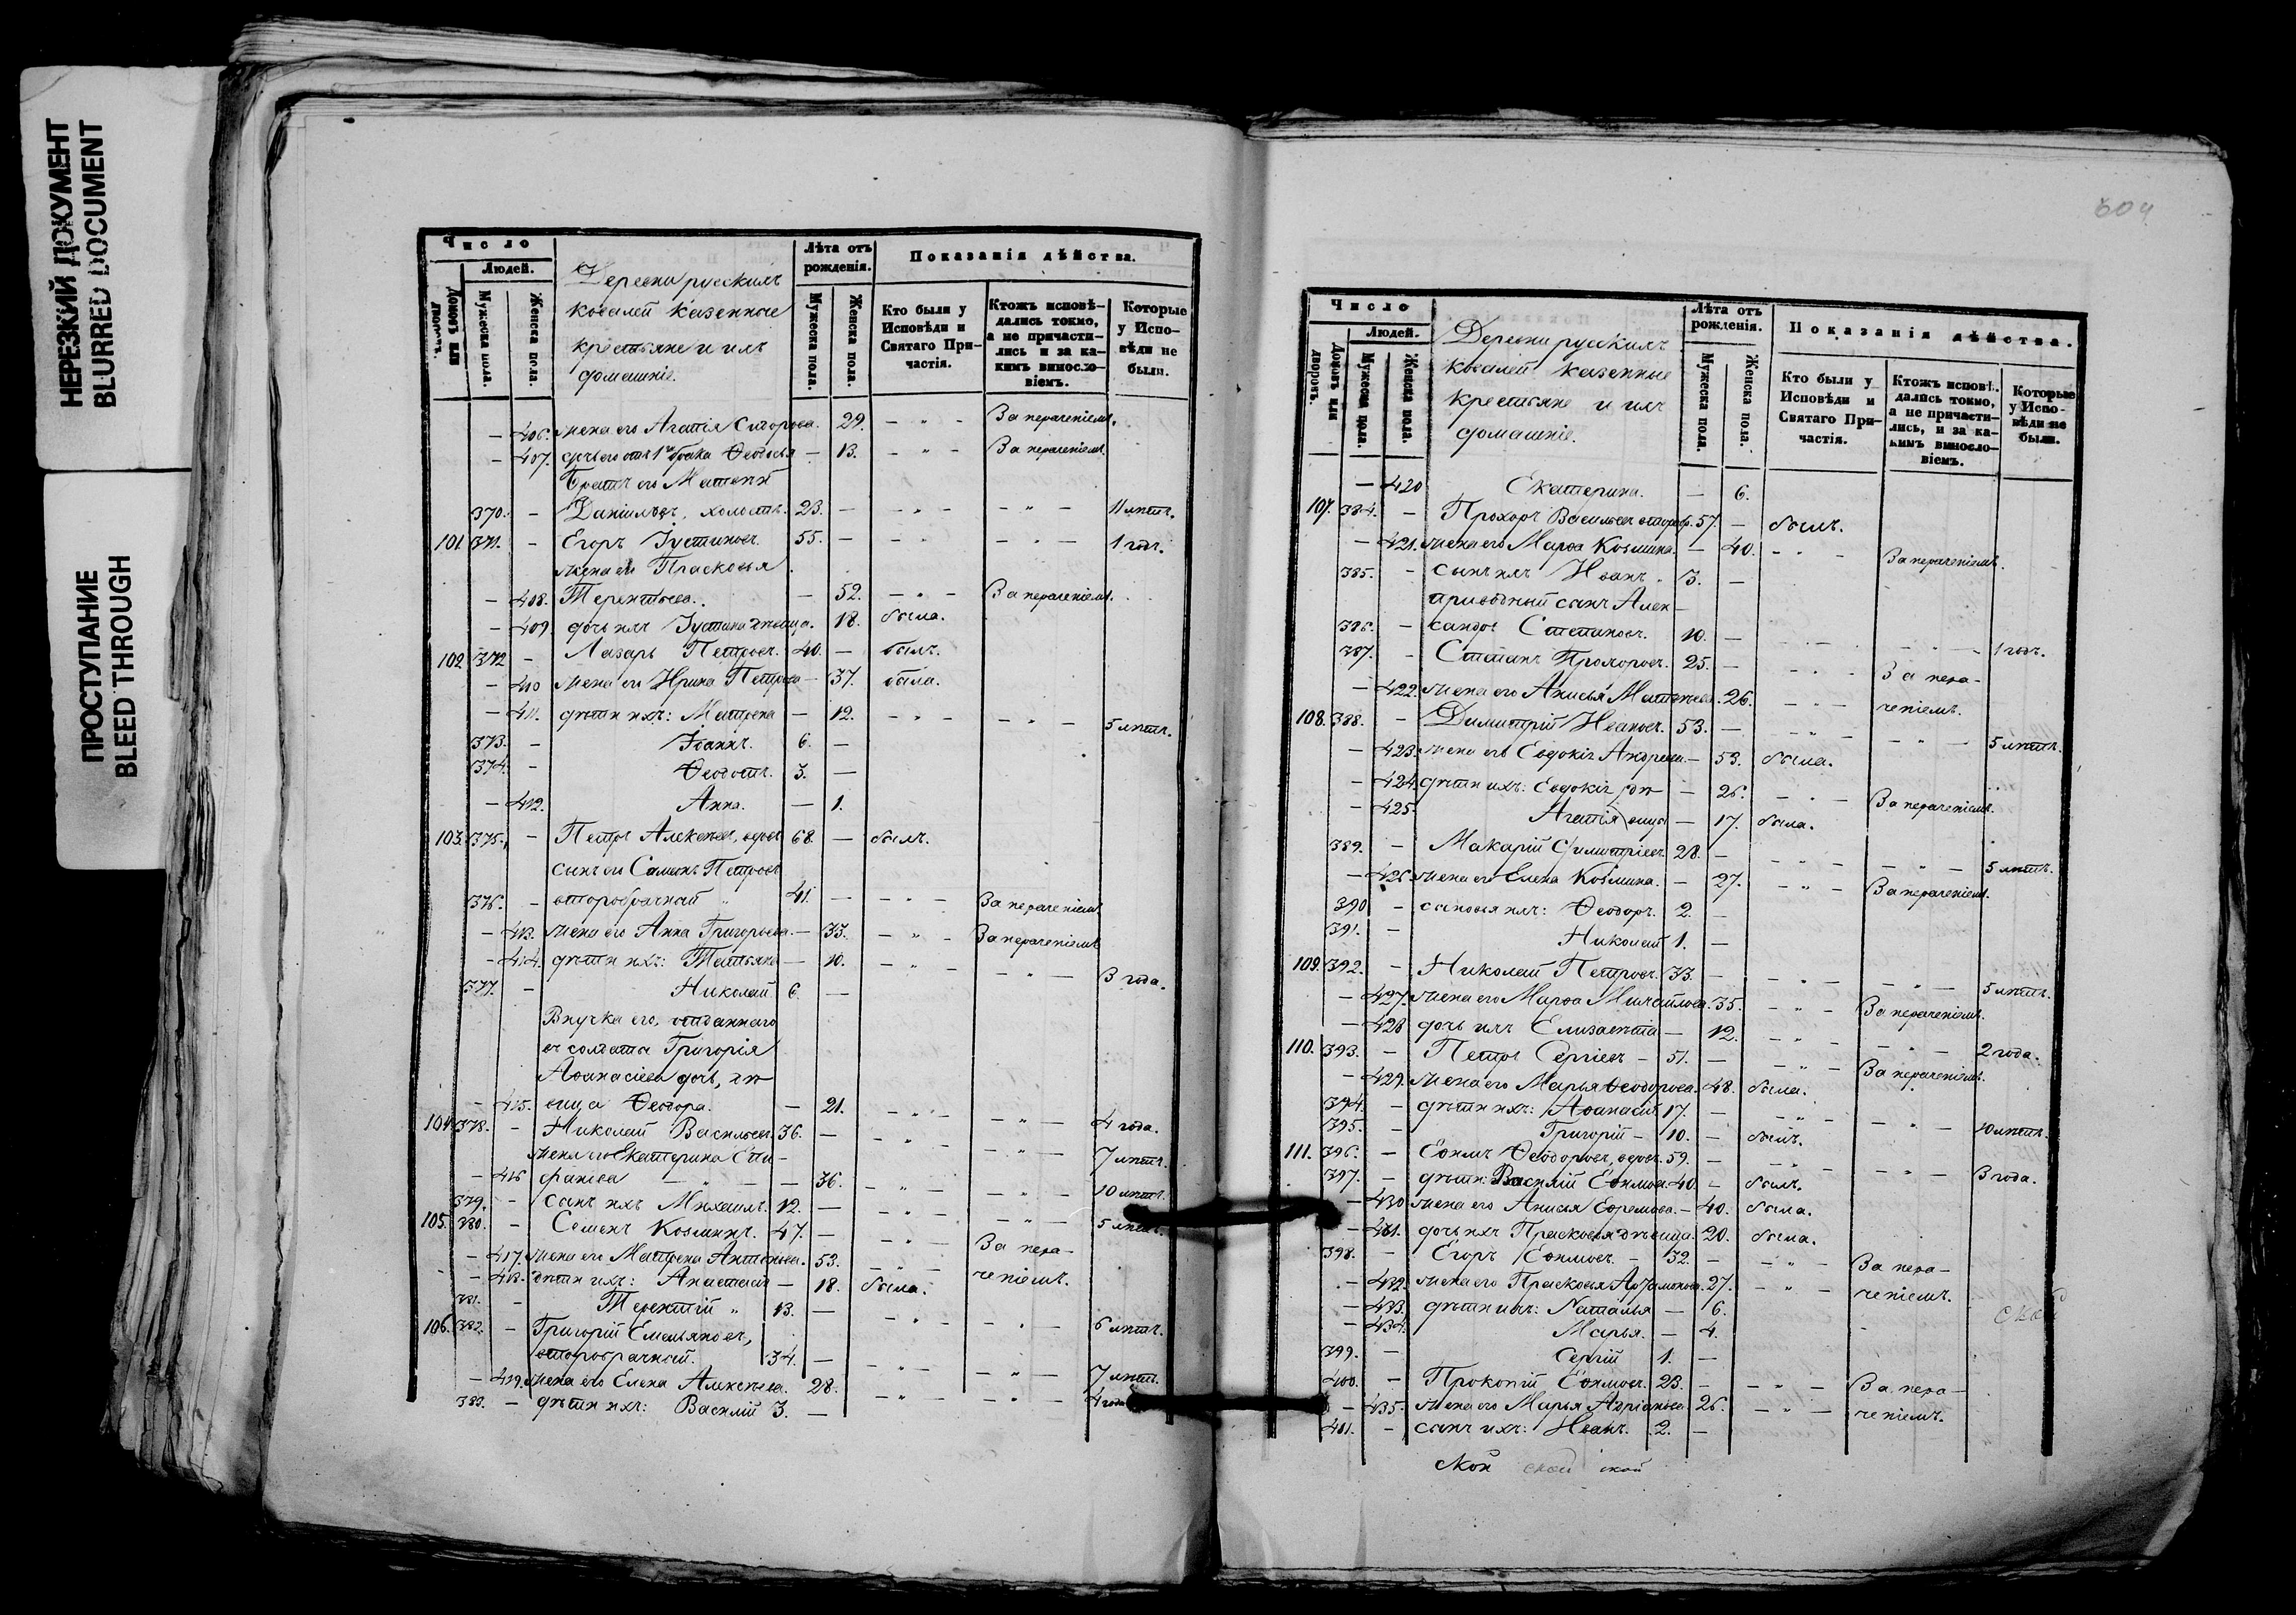 НЕРЕЗКИЙ ДОКУМЕНТ
BLURRED DOCUMENT
ПРОСТУПАНИЕ
BLEED THROUGH
Число
Людей.
Домовъ или дворовъ.
Мужеска пола.
Женска пола.
Деревни русскихъ
ковалей казенные
крестьяне и ихъ
домашніе.
Лѣта отъ рожденія.
Мужеска пола.
Женска пола.
Показанія дѣйства.
Кто были у Исповѣди и Святаго Причастія.
Ктожъ исповѣдались токмо, а не причастились и за какимъ винословіемъ.
Которые у Исповѣди не были.
— 406. жена его Агапія Сидорова. 29. — „ — За нераченіемъ.
— 407. дочь его отъ 1го брака Ѳеодосья — 13. — „ — За нераченіемъ.
Братъ его Матѳей
370. — Даніиловъ, холостъ. 23. — — „ — — „ — 11 лѣтъ.
101. 371. — Егоръ Іустиновъ. 55. — — „ — — „ — 1 годъ.
жена его Прасковья
— 408. Терентьева. — 52. — „ — За нераченіемъ.
— 409. дочь ихъ Іустина дѣвица. 18. была.
102. 372 — Лазарь Петровъ. 40. — былъ.
— 410 жена его Ирина Петрова — 37. была.
— 411. дѣти ихъ: Матрена — 12. — „ — — „ — 5 лѣтъ.
373. — Іоаннъ. 6. —
374. — Ѳеодотъ. 3. —
— 412. Анна. — 1.
103. 375. — Петръ Алексѣевъ, вдовъ 68. — былъ.
сынъ его Семенъ Петровъ
376. — второбрачный 41. — — „ — За нераченіемъ
— 413. жена его Анна Григорьева. — 33. — „ — За нераченіемъ
— 414. дѣти ихъ: Татьяна — 10. — „ — — „ — 3 года.
377. — Николай 6. —
Внучка его, отданнаго
въ солдаты Григорія
Аѳанасіева дочь, дѣ-
— 415. вица Ѳеодора. — 21. — „ — — „ — 4 года.
104. 378. — Николай Васильевъ. 36. — — „ — — „ — 7 лѣтъ.
жена его Екатерина Епи-
— 416 фанiева — 36. — „ — — „ — 10 лѣтъ.
379. — сынъ ихъ Михаилъ. 12. — — „ — — „ — 5 лѣтъ.
105. 380. — Семенъ Козминъ. 47. — — „ — За нера-
— 417. жена его Матрена Антонова. 53. — „ — ченіемъ.
— 418. дѣти ихъ: Анастасія — 18. была.
381. — Терентій „ 13. — — „ — — „ — 6 лѣтъ.
106. 382. — Григорій Емельяновъ,
второбрачный. 34. — — „ — — „ — 7 лѣтъ.
— 419. жена его Елена Алексѣева. 28. — „ — — „ — 4 года
383. — дѣти ихъ: Василій 3. —
604
Число
Людей.
Домовъ или дворовъ.
Мужеска пола.
Женска пола.
Деревни русскихъ
ковалей казенные
крестьяне и ихъ
домашніе.
Лѣта отъ рожденія.
Мужеска пола.
Женска пола.
Показанія дѣйства.
Кто были у Исповѣди и Святаго Причастія.
Ктожъ исповѣдались токмо, а не причастились, и за какимъ винословіемъ.
Которые у Исповѣди не были.
— 420 Екатерина. — 6.
107. 384. — Прохоръ Васильевъ второбр. 57. — былъ.
— 421. жена его Марѳа Козмина. — 40. — „ — За нераченіемъ.
385. — сынъ ихъ Иванъ. 3. —
приводный сынъ Алек-
386. — сандръ Степановъ. 10. — — „ — — „ — 1 годъ.
387. — Степанъ Прохоровъ. 25. — — „ — За нера-
— 422. жена его Анисья Матвѣева. 26. — „ — ченіемъ.
108. 388. — Димитрій Ивановъ. 53. — — „ — — „ — 5 лѣтъ.
— 423. жена его Евдокія Андреева. — 53. была.
— 424. дѣти ихъ: Евдокія дѣ- — 26. — „ — За нераченіемъ.
— 425. Агапія вицы — 17. была.
389. — Макарій Димитріевъ. 28. — — „ — — „ — 5 лѣтъ.
— 426. жена его Елена Козмина. — 27. — „ — За нераченіемъ.
390 — сыновья ихъ: Ѳеодоръ. 2. —
391. — Николай 1. —
109. 392. — Николай Петровъ. 33. — — „ — — „ — 5 лѣтъ.
— 427. жена его Марѳа Михайлова. 35. — „ — За нераченіемъ.
— 428 дочь ихъ Елизавета — 12. — „ — — „ — 2 года.
110. 393. — Петръ Сергіевъ — 51. — — „ — За нераченіемъ.
— 429. жена его Марья Ѳеодорова. 48. была.
394. — дѣти ихъ: Аѳанасій 17. — — „ — — „ — 10 лѣтъ.
395. — Григорій — 10. — былъ.
111. 396. — Еѳимъ Ѳеодоровъ, вдовъ. 59. — — „ — — „ — 3 года.
397. — дѣти: Василій Еѳимовъ 40. — былъ.
— 430 жена его Анисья Ефремова. — 40. была.
— 431. дочь ихъ Прасковья дѣвица. 20. была.
398. — Егоръ Еѳимовъ. — 32. — — „ — За нера-
— 432. жена его Прасковья Артамонова. 27. — „ — ченіемъ.
— 433. дѣти ихъ: Наталья — 6.
— 434. Марья. — 4.
399. — Сергій 1. —
400. — Прокопій Еѳимовъ. 23. — — „ — За нера-
— 435. жена его Марья Адріанова. 26. — „ — ченіемъ.
401. — сынъ ихъ: Иванъ. 2. —
ской